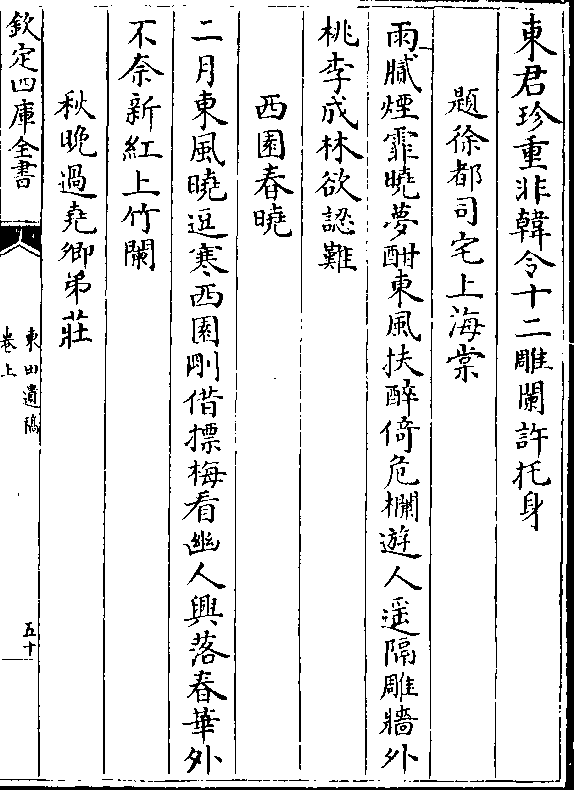 東君珍重非韓令十二雕闌許托身
題徐都司宅上海棠
雨膩煙霏曉夢酣東風扶醉倚危欄遊人遥隔雕牆外
桃李成林欲認難
西園春曉
二月東風曉逗寒西園剛借摽梅看幽人興落春華外
不奈新紅上竹闌
秋晚過堯卿弟莊
欽定四庫全書
東田遺稿
卷上
五十